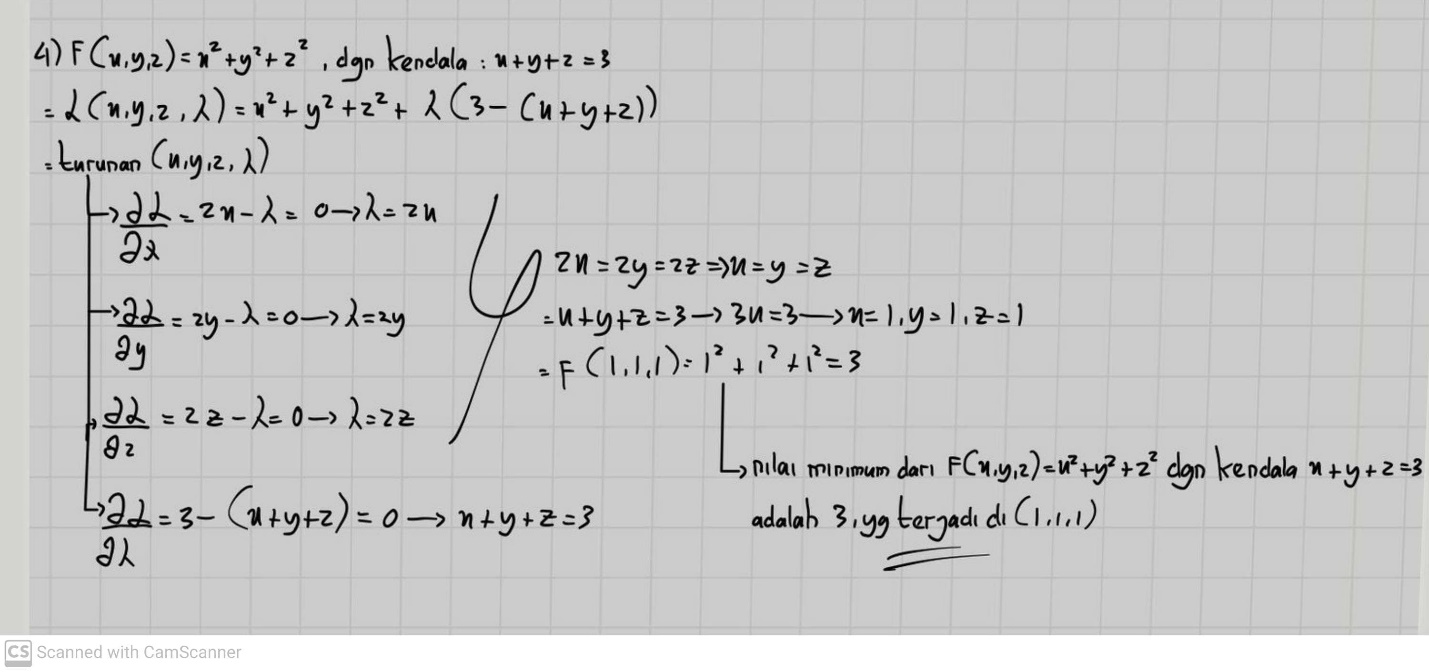 4) F(x,y,z) = x² + y² + z², dgn kendala : x + y + z = 3
= L(x,y,z,λ) = x² + y² + z² + λ(3 - (x + y + z))
= turunan (x,y,z,λ)
→ ∂L/∂x = 2x - λ = 0 → λ = 2x
→ ∂L/∂y = 2y - λ = 0 → λ = 2y
→ ∂L/∂z = 2z - λ = 0 → λ = 2z
→ ∂L/∂λ = 3 - (x + y + z) = 0 → x + y + z = 3
2x = 2y = 2z ⇒ x = y = z
= x + y + z = 3 → 3x = 3 → x = 1, y = 1, z = 1
= F(1,1,1) = 1² + 1² + 1² = 3
→ nilai minimum dari F(x,y,z) = x² + y² + z² dgn kendala x + y + z = 3
adalah 3, yg terjadi di (1,1,1)
CS Scanned with CamScanner